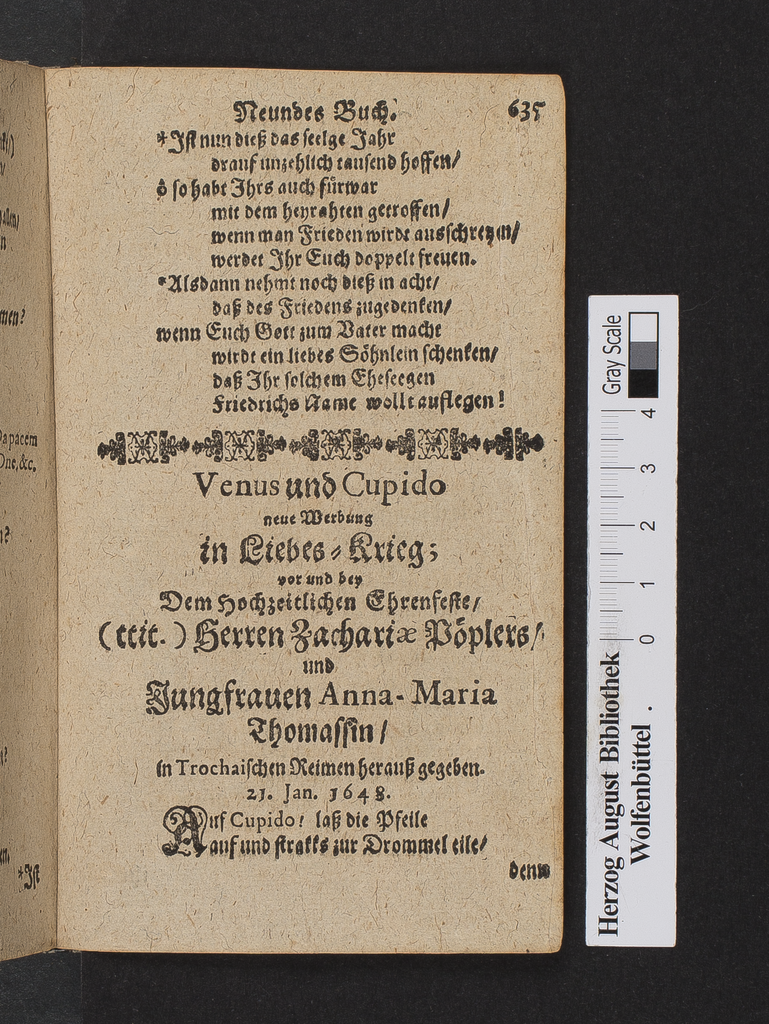 Neundes Buch. 635
*Ist nun dieß das seelge Jahr
drauf unzehlich tausend hoffen/
ô so habt Ihrs auch fürwar
mit dem heyrahten getroffen/
wenn man Frieden wirdt ausschreyen/
werdet Ihr Euch doppelt freuen.
*Alsdann nehmt noch dieß in acht/
daß des Friedens zugedenken/
wenn Euch Gott zum Vater macht
wirdt ein liebes Söhnlein schenken/
daß Ihr solchem Eheseegen
Friedrichs Name wollt auflegen!
Venus und Cupido
neue Werbung
in Liebes-Krieg;
vor und bey
Dem Hochzeitlichen Ehrenfeste/
(ttit.) Herren Zachariæ Pöplers/
und
Jungfrauen Anna-Maria
Thomassin/
in Trochaischen Reimen herauß gegeben.
21. Jan. 1648.
Auf Cupido! laß die Pfeile
auf und strakks zur Drommel eile/
denn
men?
Da pacem
One, &c.
*Ist
Gray Scale
4
3
2
1
0
Herzog August Bibliothek
Wolfenbüttel .